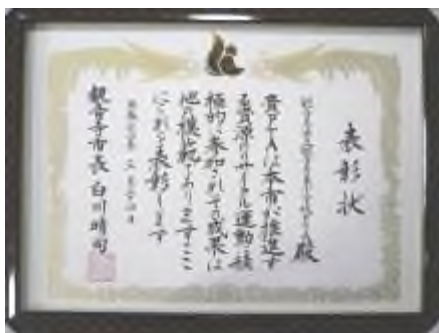 表彰状
殿
貴PTAは本市が推進す
る資源リサイクル運動に積
極的に参加されその成果は
他の模範でありますここ
にこれを表彰します
観音寺市長 白川晴司